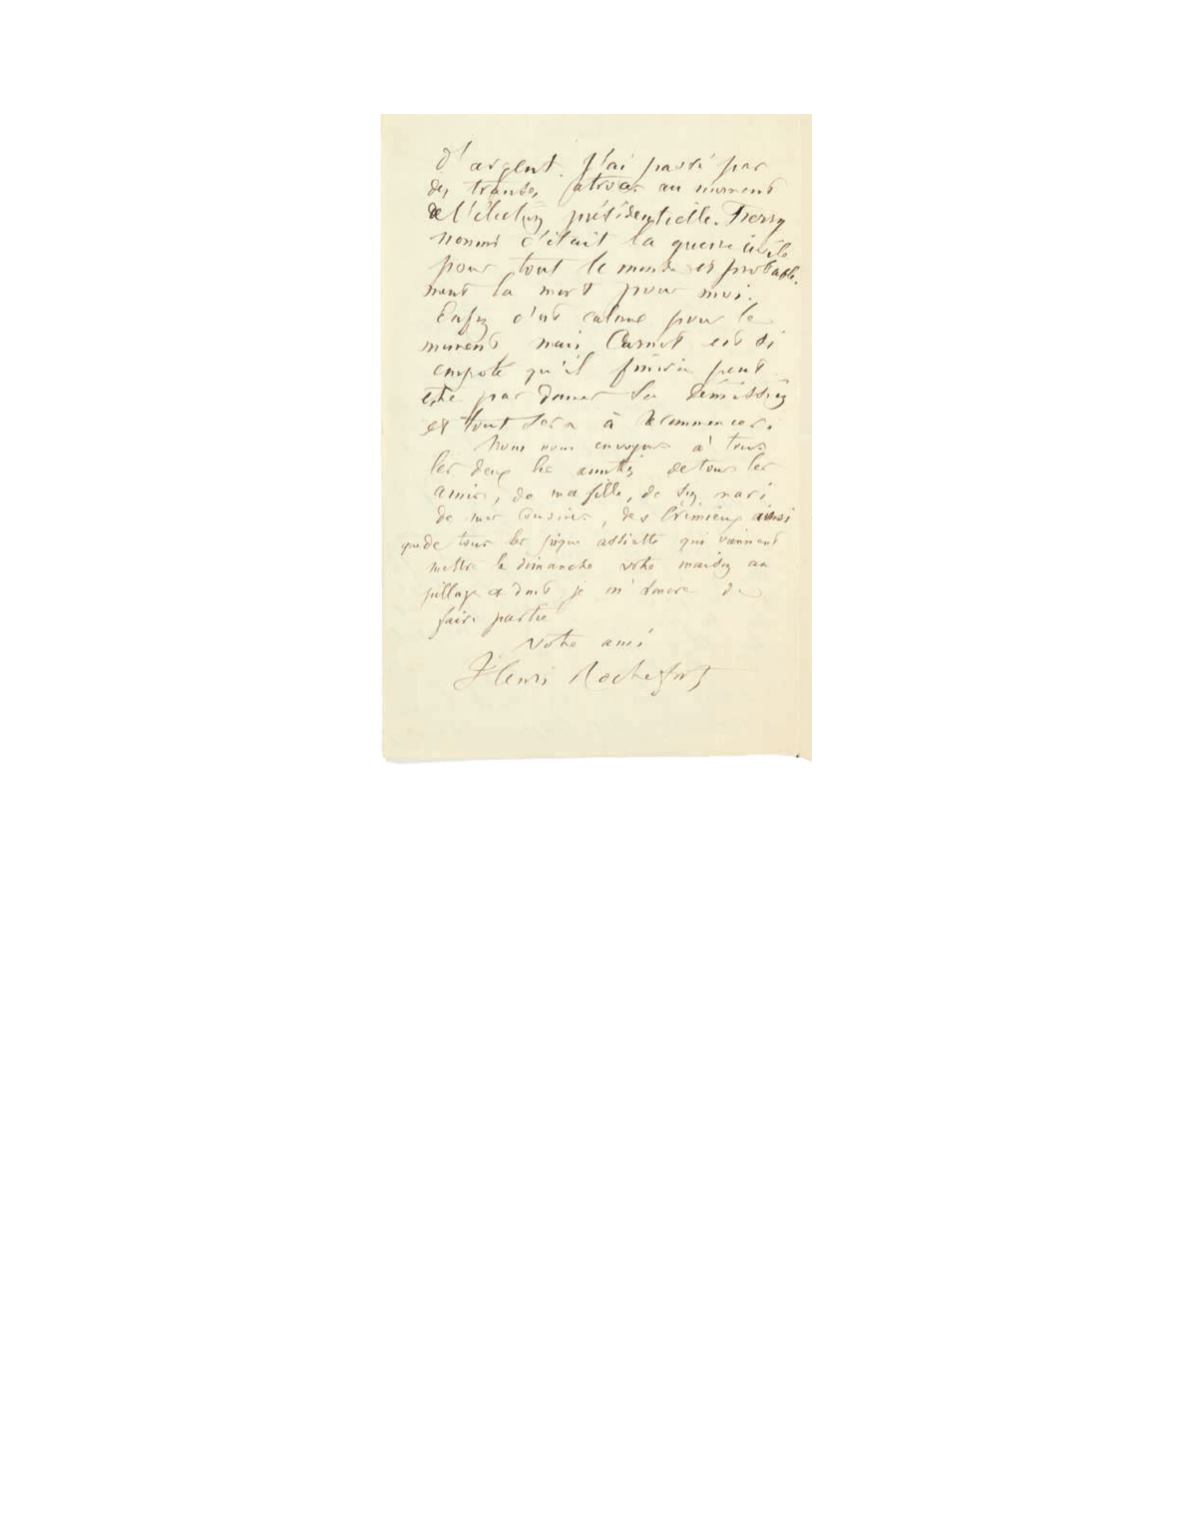 d'argent. J'ai passé par
des transes atroces au moment
de l'élection présidentielle. Ferry
nommé c'était la guerre civile
pour tout le monde et probable-
ment la mort pour moi.
Enfin c'est calmé pour le
moment mais Carnot est si
empoté qu'il finira peut
être par donner sa démission
et tout sera à recommencer.
Nous vous envoyons à tous
les deux les amitiés de tous les
amis, de ma fille, de son mari
de mes cousines, des Crémieux ainsi
que de tous les pique assiette qui viennent
mettre le dimanche votre maison au
pillage et dont je m'honore de
faire partie
Votre ami
Henri Rochefort